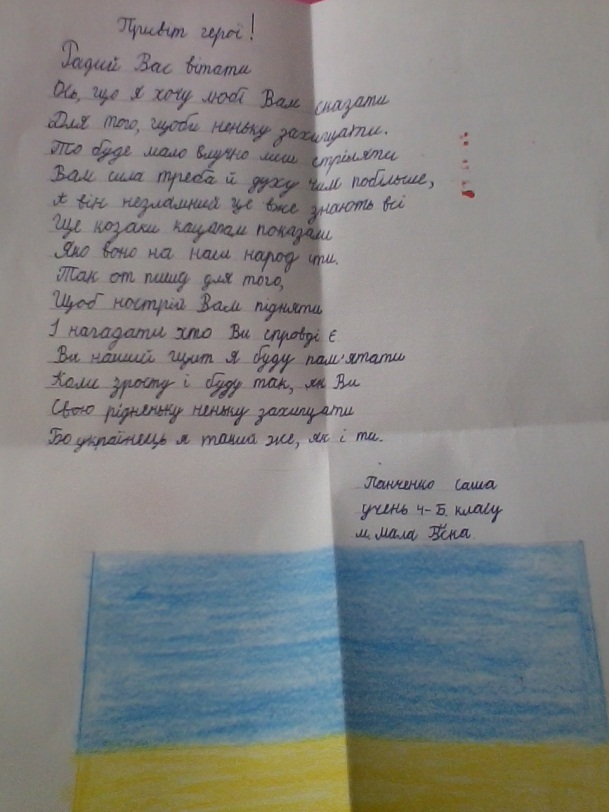 Привіт герої!
Радий Вас вітати
Ось, що я хочу любі Вам сказати
Для того, щоби неньку захищати.
То буде мало влучно лиш стріляти
Вам сила треба й духу чим побільше,
А він незламний це вже знають всі
Ще козаки кацапам показали
Яко воно на наш народ іти.
Так от пишу для того,
Щоб нострій Вам підняти
І нагадати хто Ви справді є
Ви нашій щит я буду пам'ятати
Коли зросту і буду так, як Ви
Свою рідненьку неньку захищати
Бо українець я такий же, як і ти.
Панченко Саша
учень 4-Б класу
м. Мала Виска